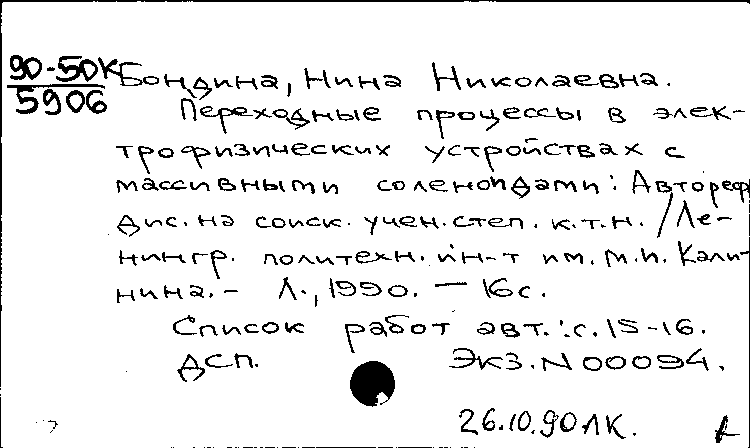 90-50К
5906
Бондина, Нина Николаевна.
Переходные процессы в элек-
трофизических устройствах с
массивными соленоидами: Автореф
дис. на соиск. учен. степ. к.т.н. / Ле-
нингр. политехн. ин-т им. М.И. Кали-
нина. - Л., 1990. — 16 с.
Список работ авт.: с. 15-16.
ДСП. Экз. N 00094.
26.10.90 ЛК.